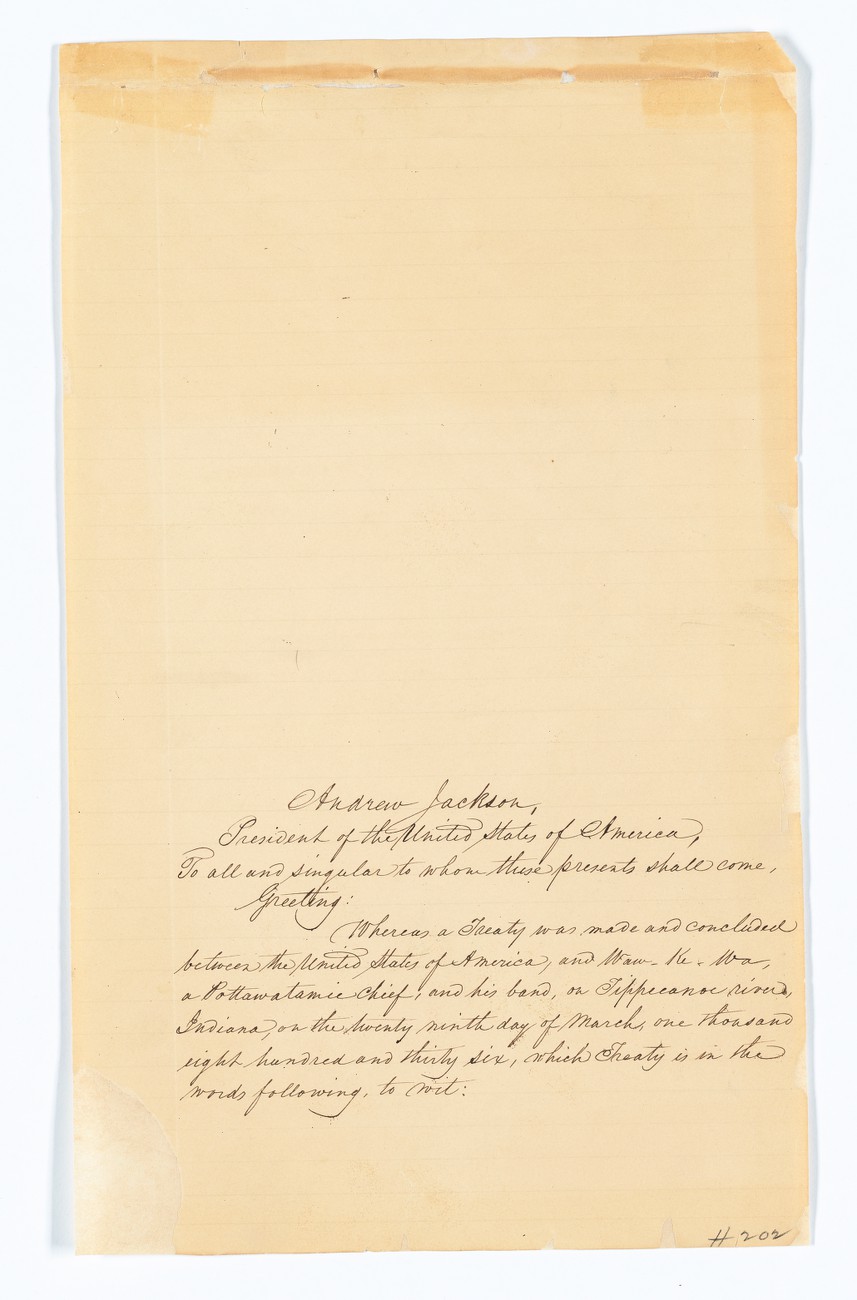 Andrew Jackson,
President of the United States of America,
To all and singular to whom these presents shall come,
Greeting:
Whereas a Treaty was made and concluded
between the United States of America, and Waw-Ke-Wa,
a Pottawatamie chief, and his band, on Tippecanoe river,
Indiana, on the twenty ninth day of March, one thousand
eight hundred and thirty six, which Treaty is in the
words following, to wit:
# 202